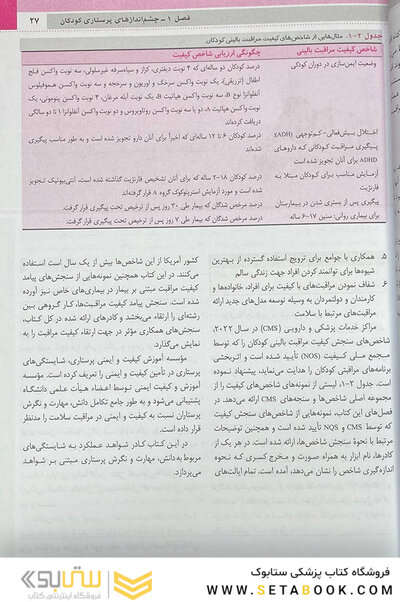 فصل ۱ – چشم‌اندازهای پرستاری کودکان
۲۷
جدول ۲-۱. مثال‌هایی از شاخص‌های کیفیت مراقبت بالینی کودکان
شاخص کیفیت مراقبت بالینی
چگونگی ارزیابی شاخص کیفیت
وضعیت ایمن‌سازی در دوران کودکی
درصد کودکان دو ساله‌ای که ۴ نوبت دیفتری، کزاز و سیاه‌سرفه غیرسلولی، سه نوبت واکسن فلج
اطفال (تزریقی)، یک نوبت واکسن سرخک و اوریون و سرخجه و سه نوبت واکسن هموفیلوس
آنفلوانزا نوع B، سه نوبت واکسن هپاتیت B، یک نوبت آبله مرغان، ۴ نوبت واکسن پنومونی، یک
نوبت واکسن هپاتیت A، دو یا سه نوبت واکسن روتاویروس و دو نوبت واکسن آنفلوانزا تا دو سالگی
دریافت کرده‌اند
اختلال بیش‌فعالی–کم‌توجهی (ADH):
پیگیری مراقبت کودکانی که داروهای
ADHD برای آنان تجویز شده است
درصد کودکان ۶ تا ۱۲ ساله‌ای که اخیراً برای آنان دارو تجویز شده است و به طور مناسب پیگیری
شده‌اند
آزمایش مناسب برای کودکان مبتلا به
فارنژیت
درصد کودکان ۱۸–۲ ساله که برای آنان تشخیص فارنژیت گذاشته شده است، آنتی‌بیوتیک تجویز
شده است و مورد آزمایش استرپتوکوک گروه A قرار گرفته‌اند
پیگیری پس از بستری شدن در بیمارستان
برای بیماری روانی: سنین ۱۷–۶ ساله
درصد مرخص شدگان که بیمار طی ۳۰ روز پس از ترخیص تحت پیگیری قرار گرفت.
درصد مرخص شدگان که بیمار طی ۷ روز پس از ترخیص تحت پیگیری قرار گرفت.
۵. همکاری با جوامع برای ترویج استفاده گسترده از بهترین
شیوه‌ها برای توانمند کردن افراد جهت زندگی سالم
۶. شفاف نمودن مراقبت‌های با کیفیت برای افراد، خانواده‌ها و
کارمندان و دولتمردان به وسیله توسعه مدل‌های جدید ارائه
مراقبت‌های مرتبط با سلامت
مراکز خدمات پزشکی و دارویی (CMS) در سال ۲۰۲۲،
شاخص‌های سنجش کیفیت مراقبت بالینی کودکان را که توسط
مجمع ملی کیفیت (NQS) تأیید شده است و اثربخشی
برنامه‌های مراقبتی کودکان را هدایت می‌نماید، پیشنهاد نموده
است. جدول ۲–۱، لیستی از نمونه‌های شاخص‌های کیفیت را از
مجموعه اصلی شاخص‌ها و سنجه‌های CMS ارائه می‌دهد. در
فصل‌های این کتاب، نمونه‌هایی از شاخص‌های سنجش کیفیت
که توسط CMS و NQS تأیید شده است و همچنین توضیحات
مرتبط با نحوهٔ سنجش شاخص‌ها، ارائه شده است. در هر یک از
کادرها، نام ابزار به همراه صورت و مخرج کسری که نحوه
اندازه‌گیری شاخص را نشان می‌دهد، آمده است. تمام ایالت‌های
کشور آمریکا از این شاخص‌ها بیش از یک سال است استفاده
می‌کنند. در این کتاب همچنین نمونه‌هایی از سنجش‌های پیامد
کیفیت مراقبت مبتنی بر بیمار در بیماری‌های خاص نیز آورده
شده است. سنجش پیامد کیفیت مراقبت‌ها، کار گروهی بین
رشته‌ای را ارتقاء می‌بخشد و کادرهای ارائه شده در کل کتاب،
سنجش‌های همکاری مؤثر در جهت ارتقاء کیفیت مراقبت را به
نمایش می‌گذارد.
مؤسسه آموزش کیفیت و ایمنی پرستاری، شایستگی‌های
پرستاری در تأمین کیفیت و ایمنی را تعریف کرده است. مؤسسه
آموزش و کیفیت ایمنی توسط اعضاء هیأت علمی دانشگاه
پشتیبانی می‌شود و به طور جامع تکامل دانش، مهارت و نگرش
پرستاران نسبت به کیفیت و ایمنی در مراقبت سلامت را مدنظر
قرار داده است.
در این کتاب کادر شواهد عملکرد به شایستگی‌های
مربوط به دانش، مهارت و نگرش پرستاری مبتنی بر شواهد
می‌پردازد.
فروشگاه کتاب پزشکی ستابوک
WWW.SETABOOK.COM
ستابوک
فروشگاه اینترنتی کتاب